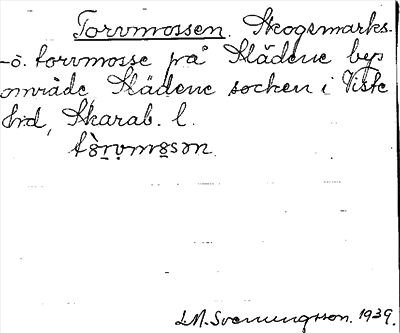 Torvmossen. Skogsmarks-
-o. torvmosse på Slädene bys
område, Slädene socken i Viste
hrd, Skarab. l.
L.M. Svenungsson. 1939.